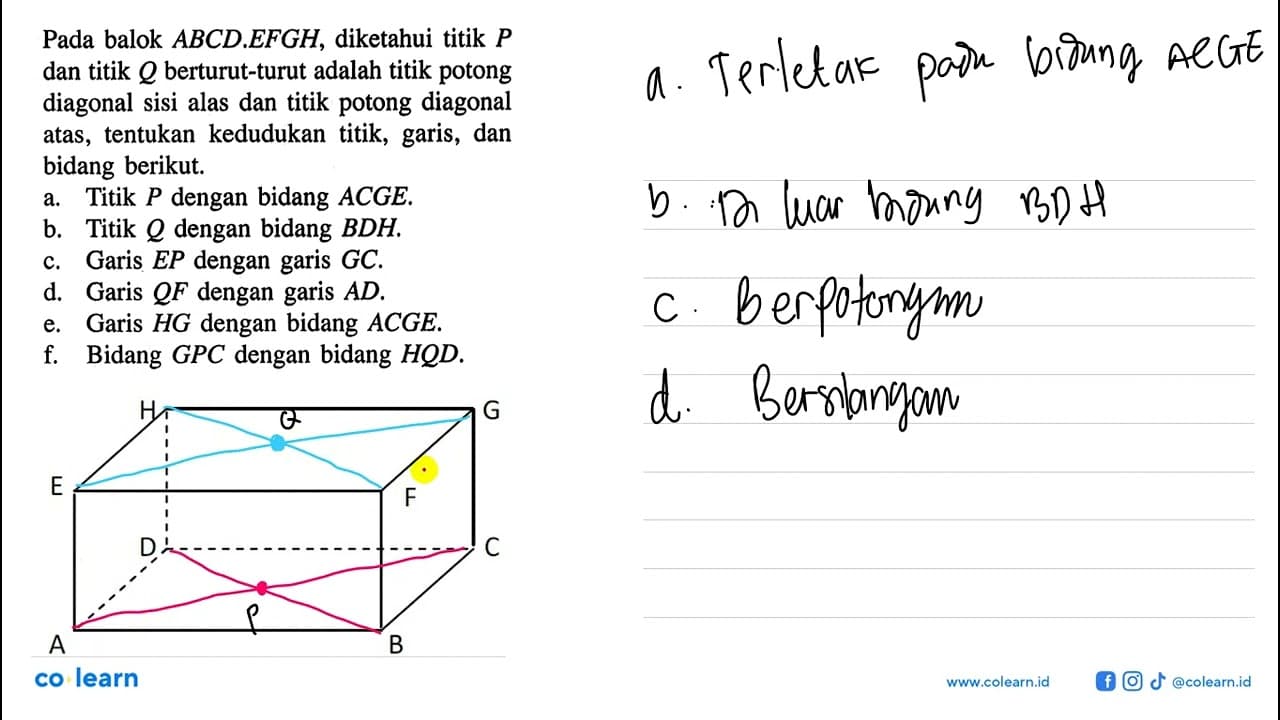 Pada balok ABCD.EFGH, diketahui titik P
dan titik Q berturut-turut adalah titik potong
diagonal sisi alas dan titik potong diagonal
atas, tentukan kedudukan titik, garis, dan
bidang berikut.
a. Titik P dengan bidang ACGE.
b. Titik Q dengan bidang BDH.
c. Garis EP dengan garis GC.
d. Garis QF dengan garis AD.
e. Garis HG dengan bidang ACGE.
f. Bidang GPC dengan bidang HQD.
H
Q
G
E
F
D
C
P
A
B
a. Terletak pada bidang ACGE
b. Di luar bidang BDH
c. Berpotongan
d. Bersilangan
co learn
www.colearn.id
@colearn.id